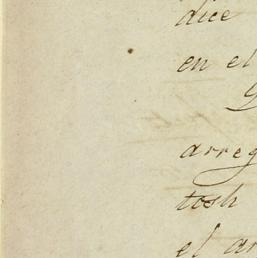 dice
en el
arreg
tosh
el an